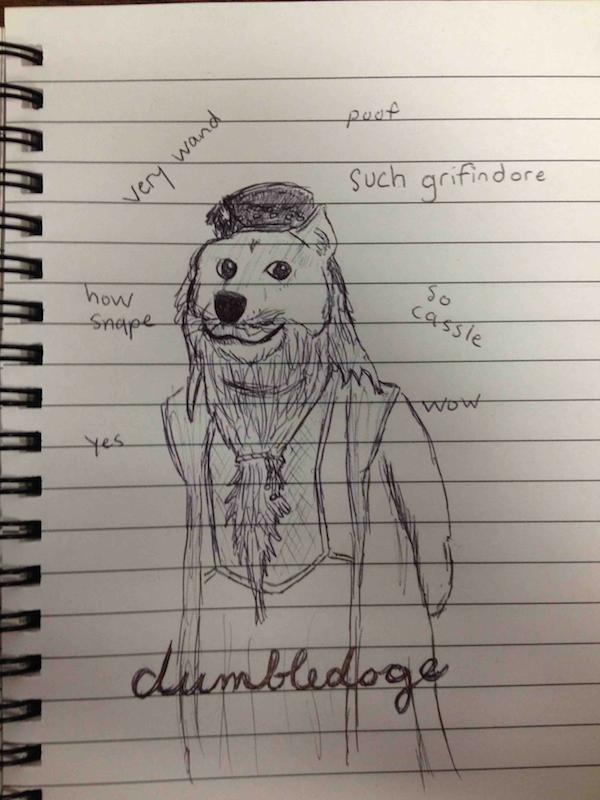 very wand
poof
such grifindore
how
snape
so
cassle
wow
yes
dumbledoge